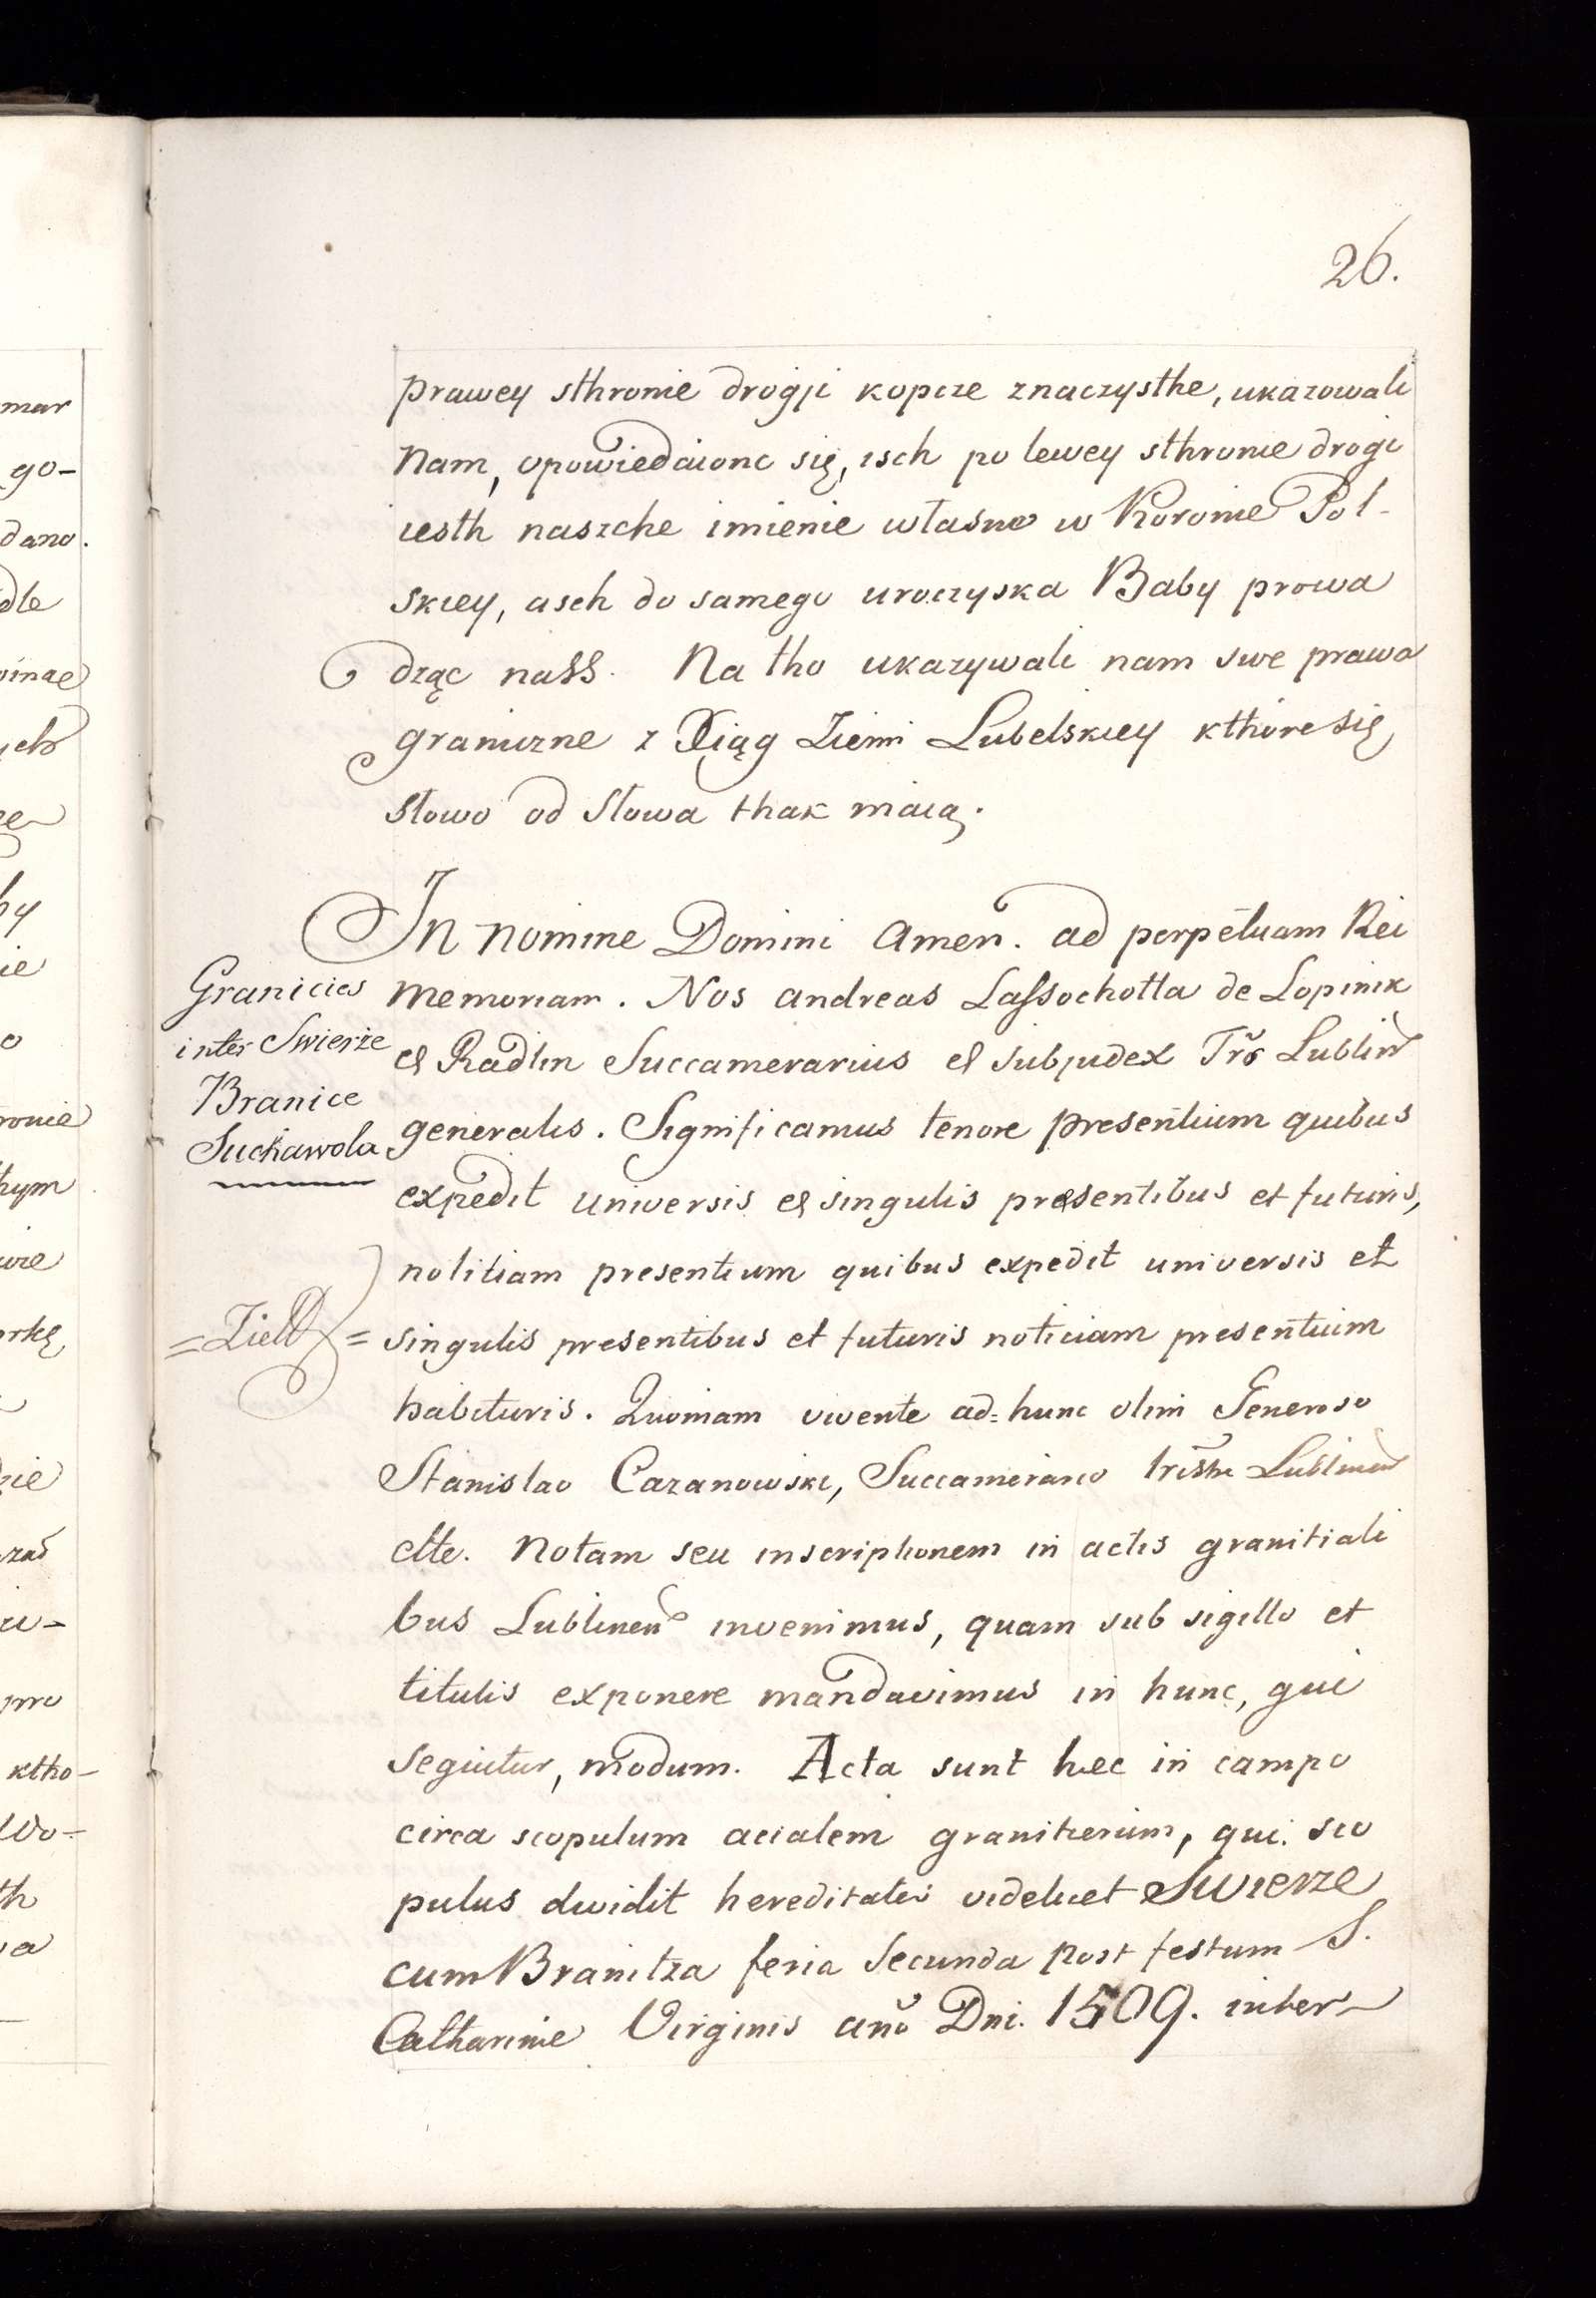 26.
prawey sthronie drogji kopcze znaczysthe, ukazowali
Nam, opowiedaionc się, isch po lewey sthronie drogi
iesth naszche imienie własne w Koronie Pol-
skiey, asch do samego uroczyska Baby prowa
dząc nass. Na tho ukazywali nam swe prawa
graniczne z Xiąg Ziemi Lubelskiey kthore się
słowo od słowa thak maią.
In nomine Domini Amen. ad perpetuam Rei
memoriam. Nos andreas Lassochotta de Lopinik
et Radlin Succamerarius et subjudex Trs Lublin
generalis. Significamus tenore presentium quibus
expedit universis et singulis presentibus et futuris,
notitiam presentium quibus expedit universis et
singulis presentibus et futuris noticiam presentium
habituris. Quoniam vivente ad=hunc olim Generoso
Stanislao Cazanowski, Succamerario Lublinen
ette. Notam seu inscriptionem in actis granitiali
bus Lublinen invenimus, quam sub sigillo et
titulis exponere mandavimus in hunc, qui
seguitur, modum. Acta sunt hec in campo
circa scopulum acialem granitierum, qui sco
pulus dividit hereditates videlicet Swierze
cum Branitza feria secunda post festum S.
Catharinie Virginis ano Dni. 1509. inter
Granicies
inter Swierże
Branice
Suchawola
mar
go-
dano.
dle
hym
ktho-